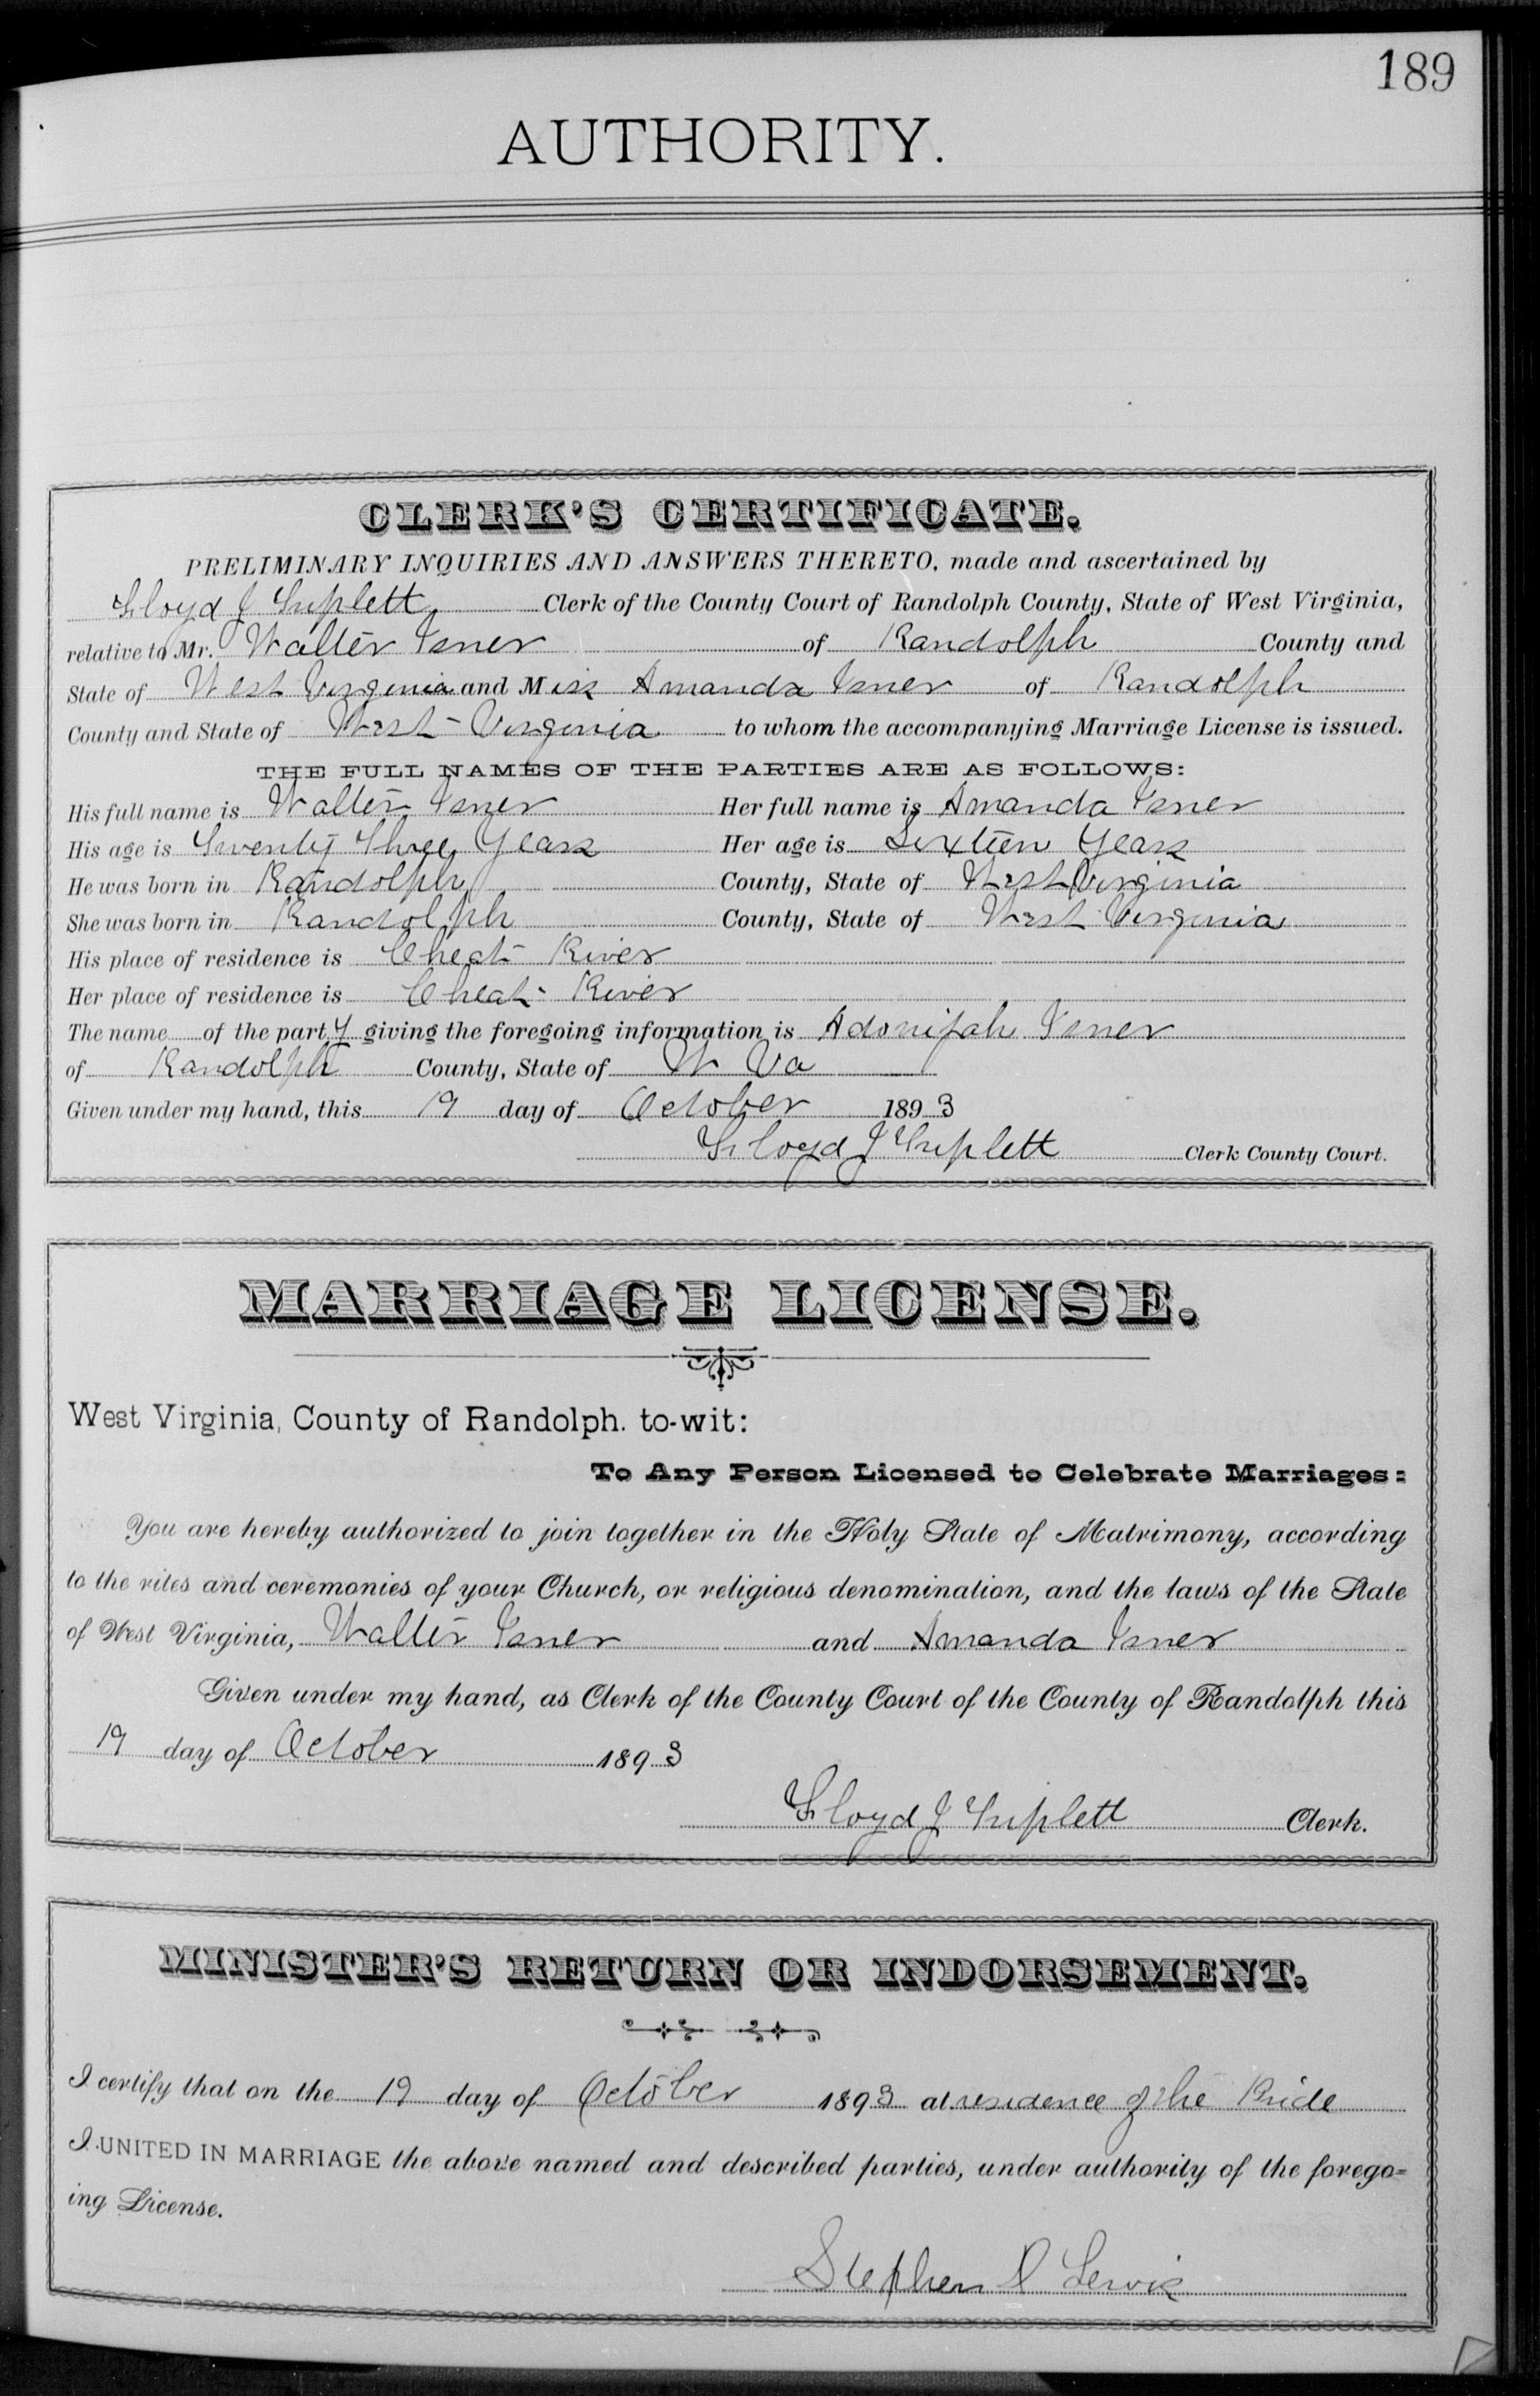 189
AUTHORITY.
CLERK'S CERTIFICATE.
PRELIMINARY INQUIRIES AND ANSWERS THERETO, made and ascertained by
Floyd J Triplett Clerk of the County Court of Randolph County, State of West Virginia,
relative to Mr. Walter Isner of Randolph County and
State of West Virginia and Miss Amanda Isner of Randolph
County and State of West Virginia to whom the accompanying Marriage License is issued.
THE FULL NAMES OF THE PARTIES ARE AS FOLLOWS:
His full name is Walter Isner Her full name is Amanda Isner
His age is Twenty Three Years Her age is Sixteen Years
He was born in Randolph County, State of West Virginia
She was born in Randolph County, State of West Virginia
His place of residence is Cheat River
Her place of residence is Cheat River
The name of the party giving the foregoing information is Adonijah Isner
of Randolph County, State of W Va
Given under my hand, this 19 day of October 1893
Floyd J Triplett Clerk County Court.
MARRIAGE LICENSE.
West Virginia, County of Randolph. to-wit:
To Any Person Licensed to Celebrate Marriages:
You are hereby authorized to join together in the Holy State of Matrimony, according
to the rites and ceremonies of your Church, or religious denomination, and the laws of the State
of West Virginia, Walter Isner and Amanda Isner
Given under my hand, as Clerk of the County Court of the County of Randolph this
19 day of October 1893
Floyd J Triplett Clerk.
MINISTER'S RETURN OR INDORSEMENT.
I certify that on the 19 day of October 1893 at residence of the Bride
I UNITED IN MARRIAGE the above named and described parties, under authority of the forego=
ing License.
Stephen Lewis